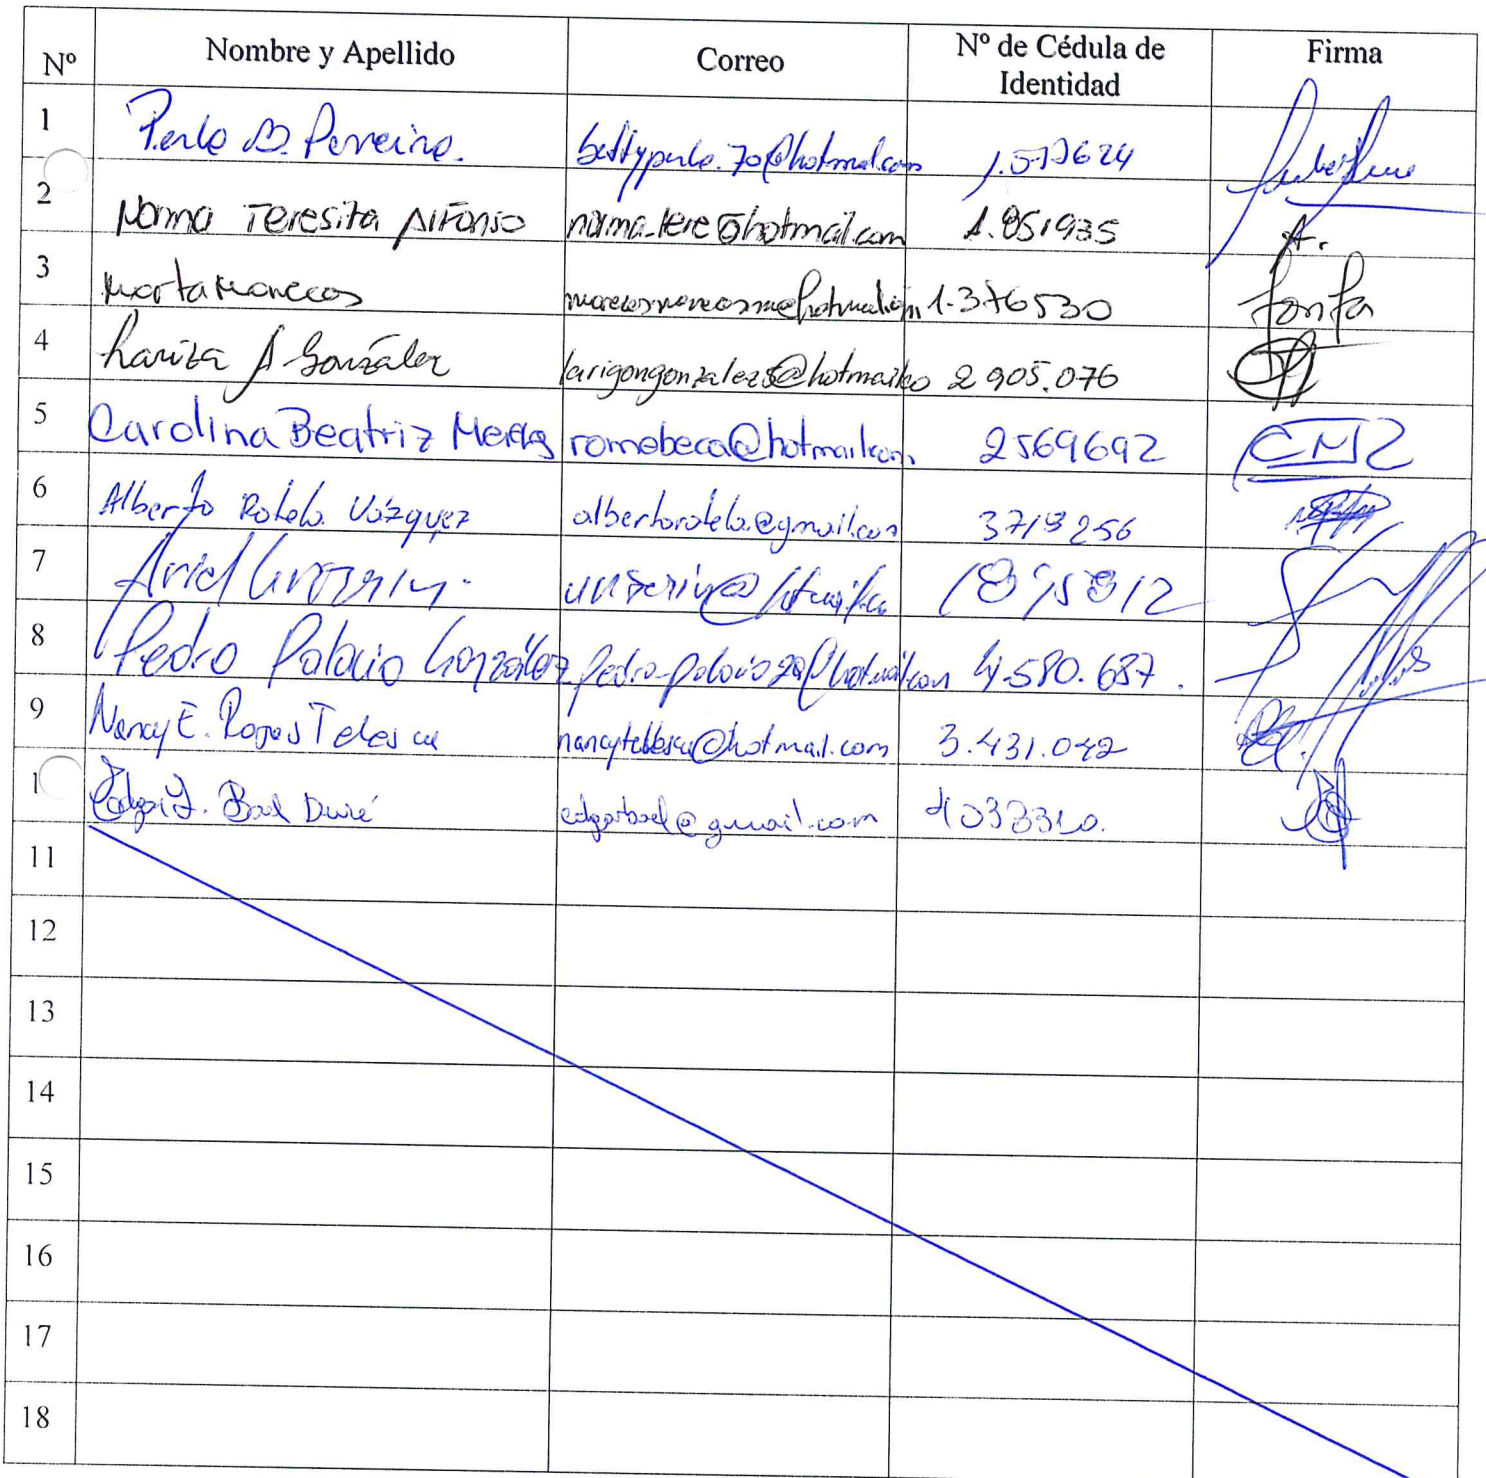 Nº Nombre y Apellido Correo Nº de Cédula de Identidad Firma
1 Perla B. Perreira. bettyperla.70@hotmail.com 1.577624
2 Norma Teresita Alfonso norma_tere@hotmail.com 1.851935
3 Marta Marecos 1.376530
4 Lariza A González larigongonzalez5@hotmailco 2905.076
5 Carolina Beatriz romebeca@hotmail.com 2569692
6 Alberto Rotela Vázquez albertorotela@gmail.com 3713256
7 Ariel 1895812
8 Pedro Palacio González pedro-palacio20@hotmail.com 4.580.687.
9 Nancy E. Rojas Telesca nancytelesca@hotmail.com 3.431.042
1 Edgar J. Bael Duré edgarbael@gmail.com 4033310.
11
12
13
14
15
16
17
18